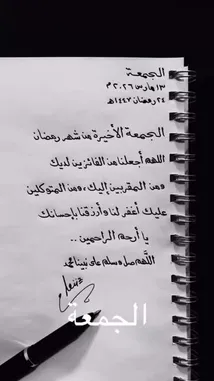 الجمعة
١٣ مارس ٢٠٢٦ م
٢٤ رمضان ١٤٤٧هـ
الجمعة الأخيرة من شهر رمضان
اللهم اجعلنا من الفائزين لديك
ومن المقربين إليك، ومن المتوكلين
عليك أغفر لنا وأرزقنا بإحسانك
يا أرحم الراحمين ..
اللهم صل وسلم على نبينا محمد
الجمعة